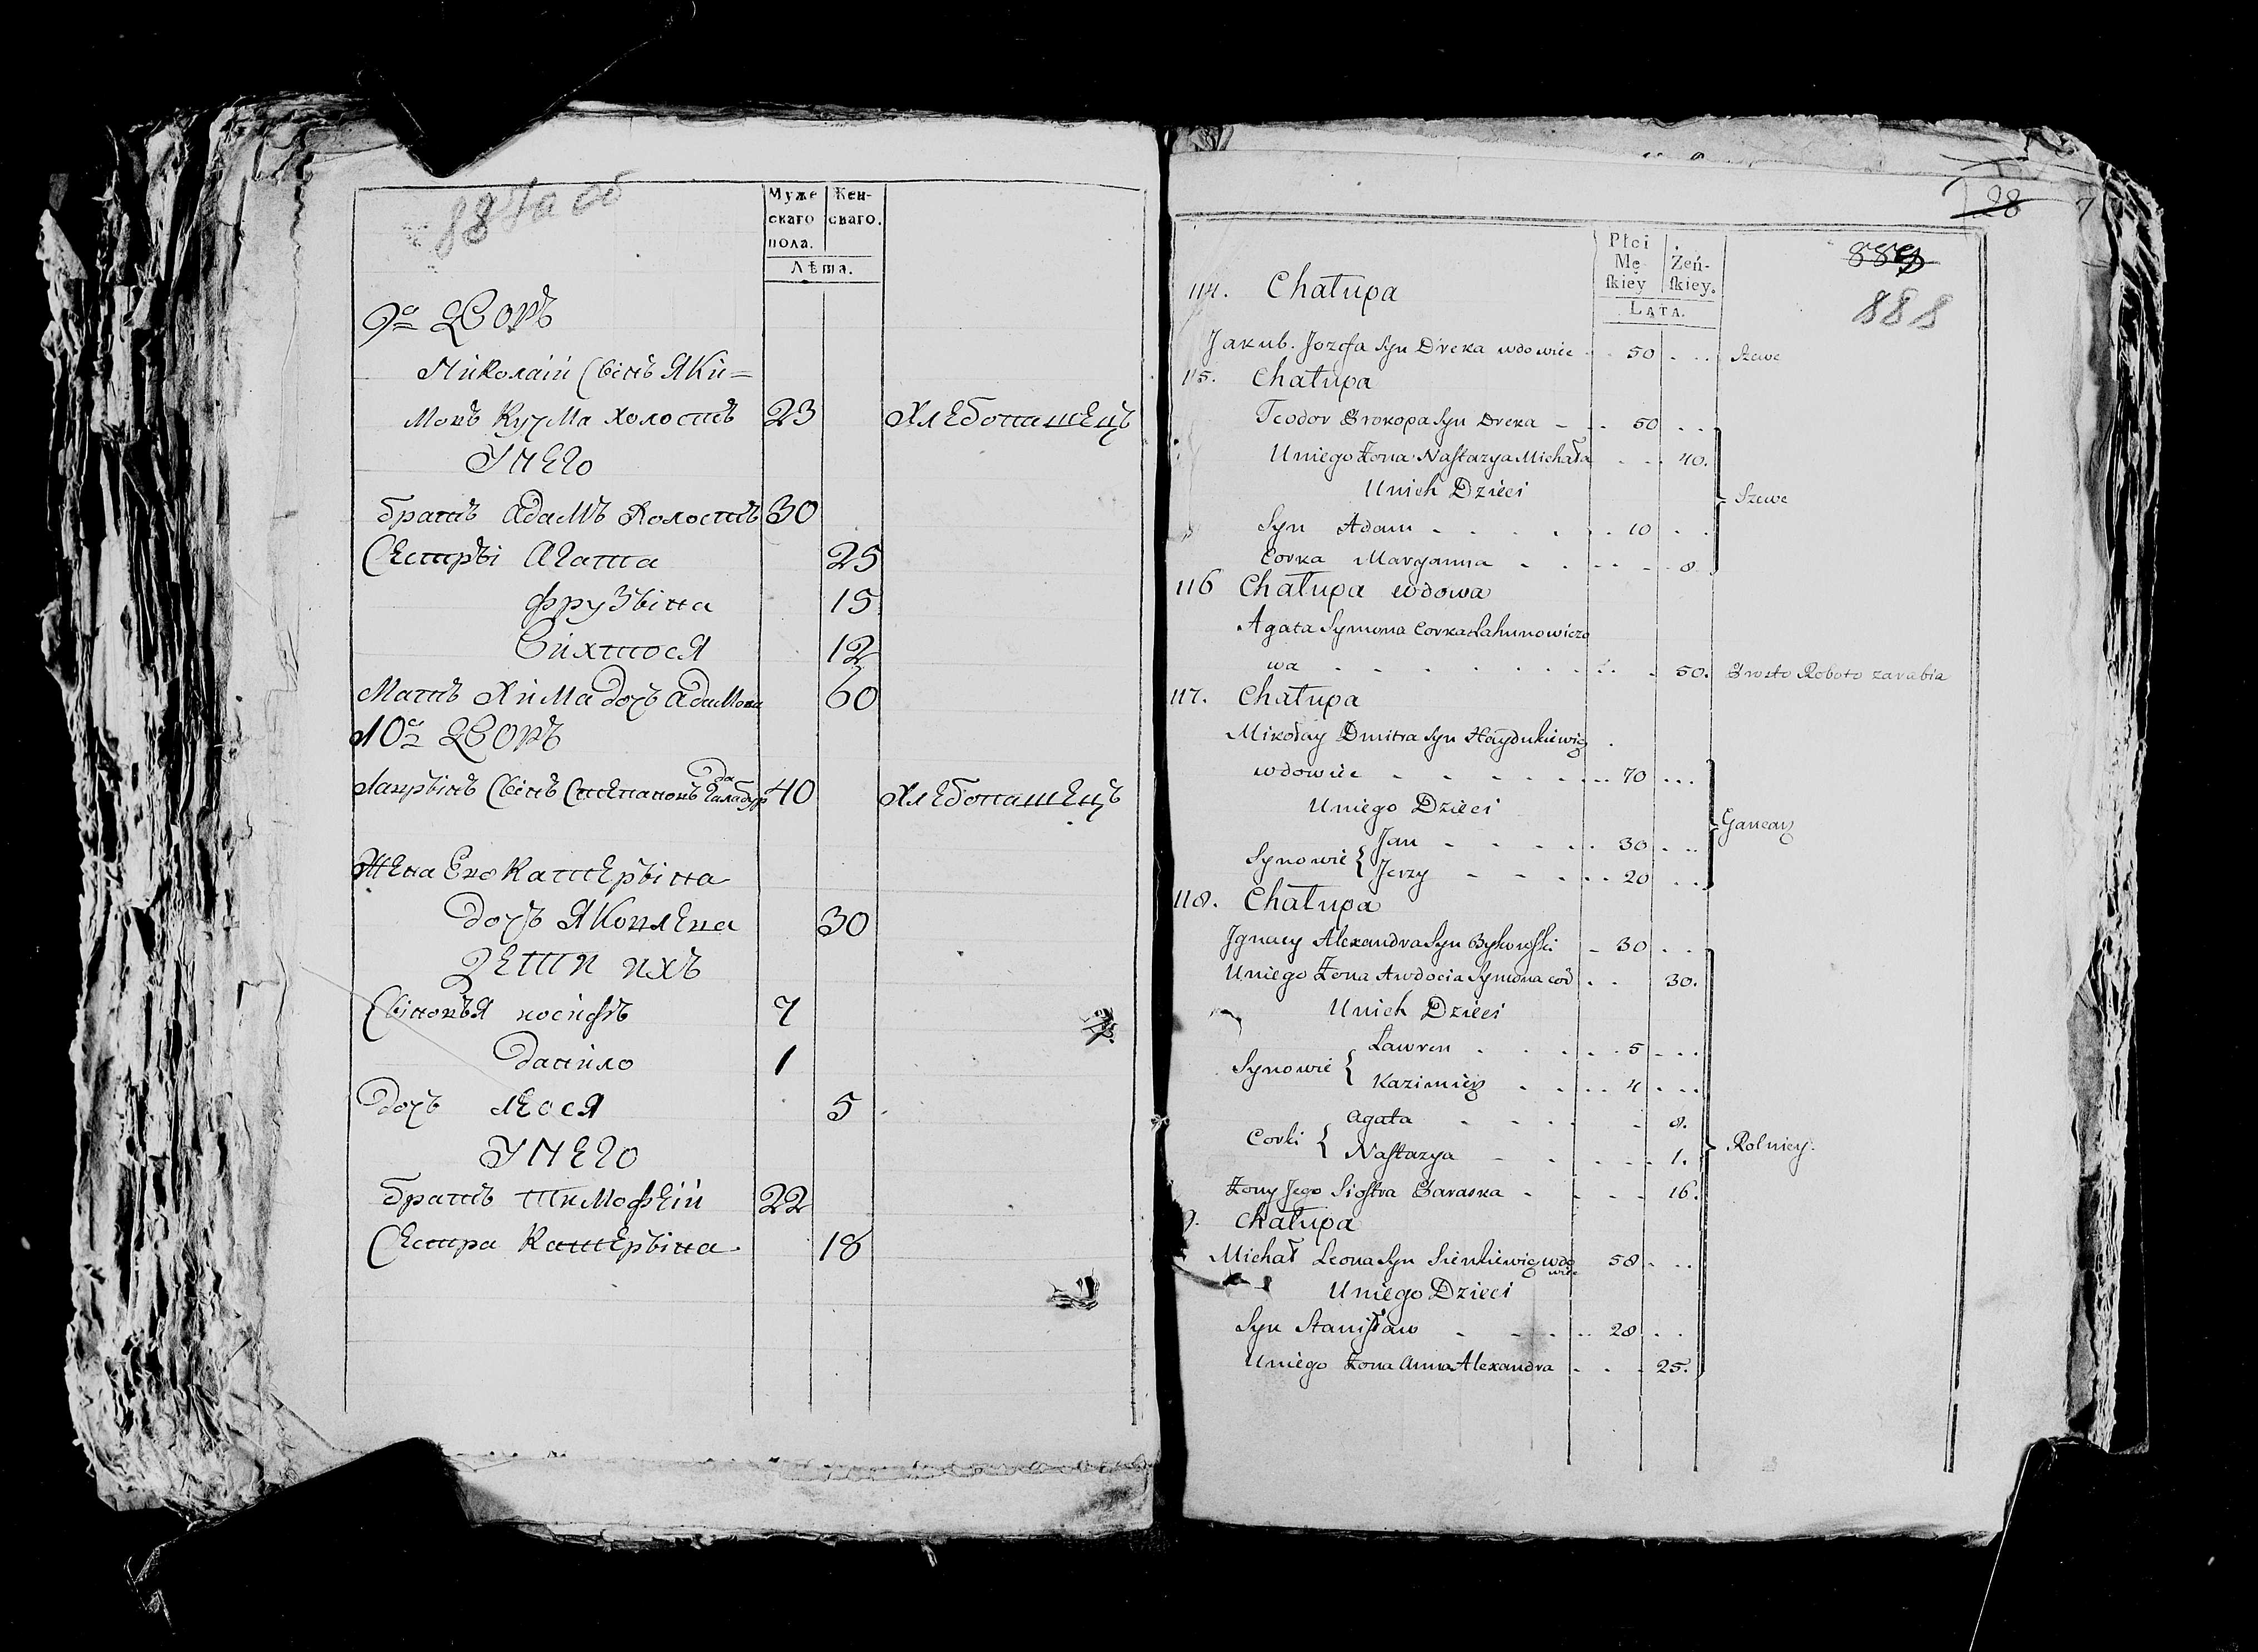 887а об
Муже
скаго
пола.
Жен-
скаго.
Лѣта.
9й Дворъ
Николай Сынъ Яки=
мовъ Кузма холостъ 23 Хлебопашецъ
У Него
братъ адамъ холостъ 30
Сестры Агата 25
Фрузына 15
Вихтося 12
Мать Хима дочь адамова 60
10й Дворъ
Лаврынъ Сынъ Степановъ 40 Хлебопашецъ
Жена Его Катерына
дочь Яковлева 30
Дети ихъ
Сыновья иосифъ 7
данило 1
дочь леося 5
У Него
братъ тимофей 22
Сестра Катерына 18
28
889
888
Płci
Mę-
skiey
Żeń-
skiey.
LATA.
114. Chałupa
Jakub Jozefa Syn Dreka wdowiec 50 Szewc
115. Chałupa
Teodor Prokopa Syn Dreka 50
Uniego Żona Nastazya Michała 40.
Unich Dzieci
Syn Adam 10
Corka Maryanna 8
Szewc
116 Chałupa wdowa
Agata Symona Corka Lahunowiczo
wa 50. Prosto Roboto zarabia
117. Chałupa
Mikołay Dmitra Syn Haydukiewicz
wdowiec 70
Uniego Dzieci
Synowie { Jan 30
Jerzy 20
Gancarz
118. Chałupa
Jgnacy Alexandra Syn Bykowski 30
Uniego Żona Awdocia Symona cor 30.
Unich Dzieci
Synowie { Lawren 5
Kazimierz 4
Corki { Agata 8.
Nastazya 1.
Rolnicy.
Żony Jego Siostra Paraska 16.
9. Chałupa
Michał Leona Syn Sienkiewicz wdo
wiec 58
Uniego Dzieci
Syn Stanisław 28
Uniego Żona Anna Alexandra 25.